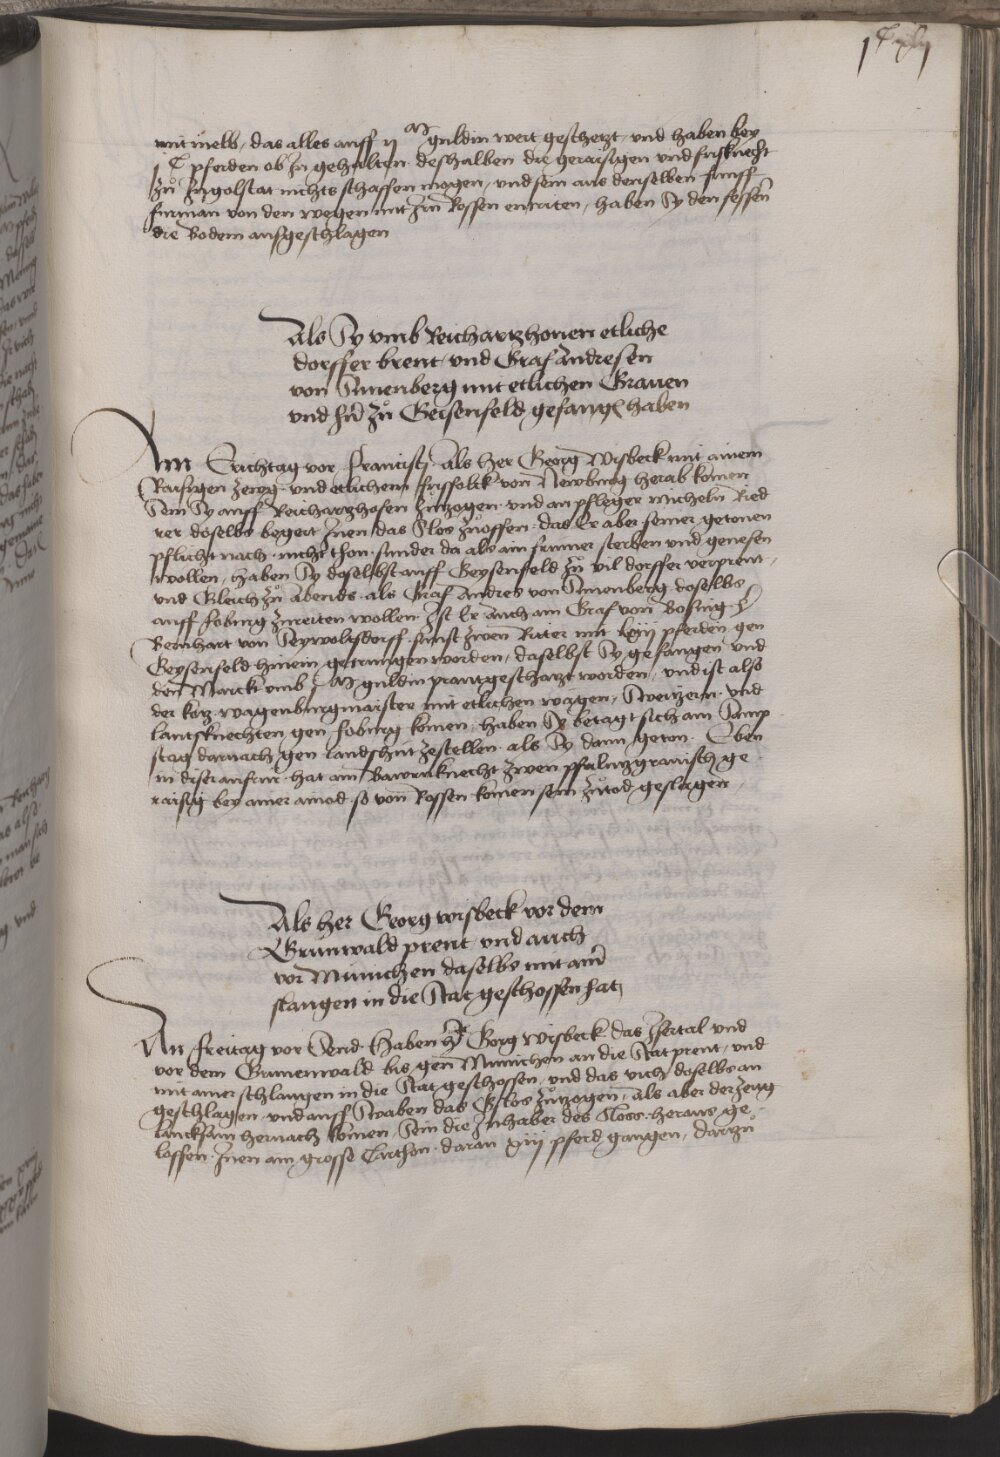 mit melb, das alles auff ij M guldin wert geschetzt, und haben bey
j C pferden ob zu gehalten. deßhalben die geraisigen und fusknecht
zů Ingolstat nichts schaffen mogen, und sein aus denselben funff
furman von den wegen mit Irn Rossen entriten, haben Sy den fessern
die Bodem aufgeschlagen
Als Sy vmb Reichartzhouen etliche
dorffer brent, vnd Graf Andresen
von Sunenberg mit etlichen Grauen
vnd Hrn zů Geisenfeld gefangen haben
Am Erichtag vor Francisci. Als her Georg Wisbeck mit ainem
Raisigen Zeug. vnd etlichem fusfolck von Newburg herab komen
Sein Sy auff Reichartzhofen zutzogen. vnd an pfleger Micheln Ried
rer doselbs begert Inen das Slos zuoffen. das Er aber seiner getonen
pflicht nach. nicht thon. sunder da als ain frumer sterben vnd genesen
wollen, haben Sy doselbst auff Geysenfeld zů vil dorffer verprent,
vnd Gleich zů abends. als Graf Andres von Sunenberg doselbs
auff foburg zureiten wollen. Ist Er auch ain Graf vom Bosing. Her
Bernhart von Seyboltsdorff. sunst zwen Ritter mit lxiij pferden gen
Geysenfeld hinein getrungen worden, daselbst Sy gefangen vnd
den Marckt vmb j M guldin prantgeschatzt worden, vnd ist also
der kotz. wagenburgmaister mit etlichen wägen, Sweitzern. vnd
lantsknechten gen foburg komen, haben Sy betagt sich am Samp
stag darnach gen landshut zestellen. als Sy dann geton. Eben
in diser anfrur. hat ain Bawrnknecht zwen pfaltzgrauisch ge
raisig bey ainer ainod. so von Rossen komen sein zůtod geslagen,
Als her Georg wisbeck vor dem
Grunwald prent vnd auch
vor Munichen daselbs mit ainer
slangen in die Stat geschossen hat
An freitag vor Send. Haben her Gorg Wisbeck das Isertal vnd
vor dem Grunenwald bis gen Munichen an die Stat prent, vnd
mit ainer schlangen in die Stat geschossen, vnd das vich doselbs an
geschlagen. vnd auff Swaben das Gslos zůtzogen, als aber der zeug
lancksam hernach komen, Sein die Inhaber des Sloss. heraus ge
loffen. Inen ain grosse Carthon. daran xiij pferd gangen, dartzů